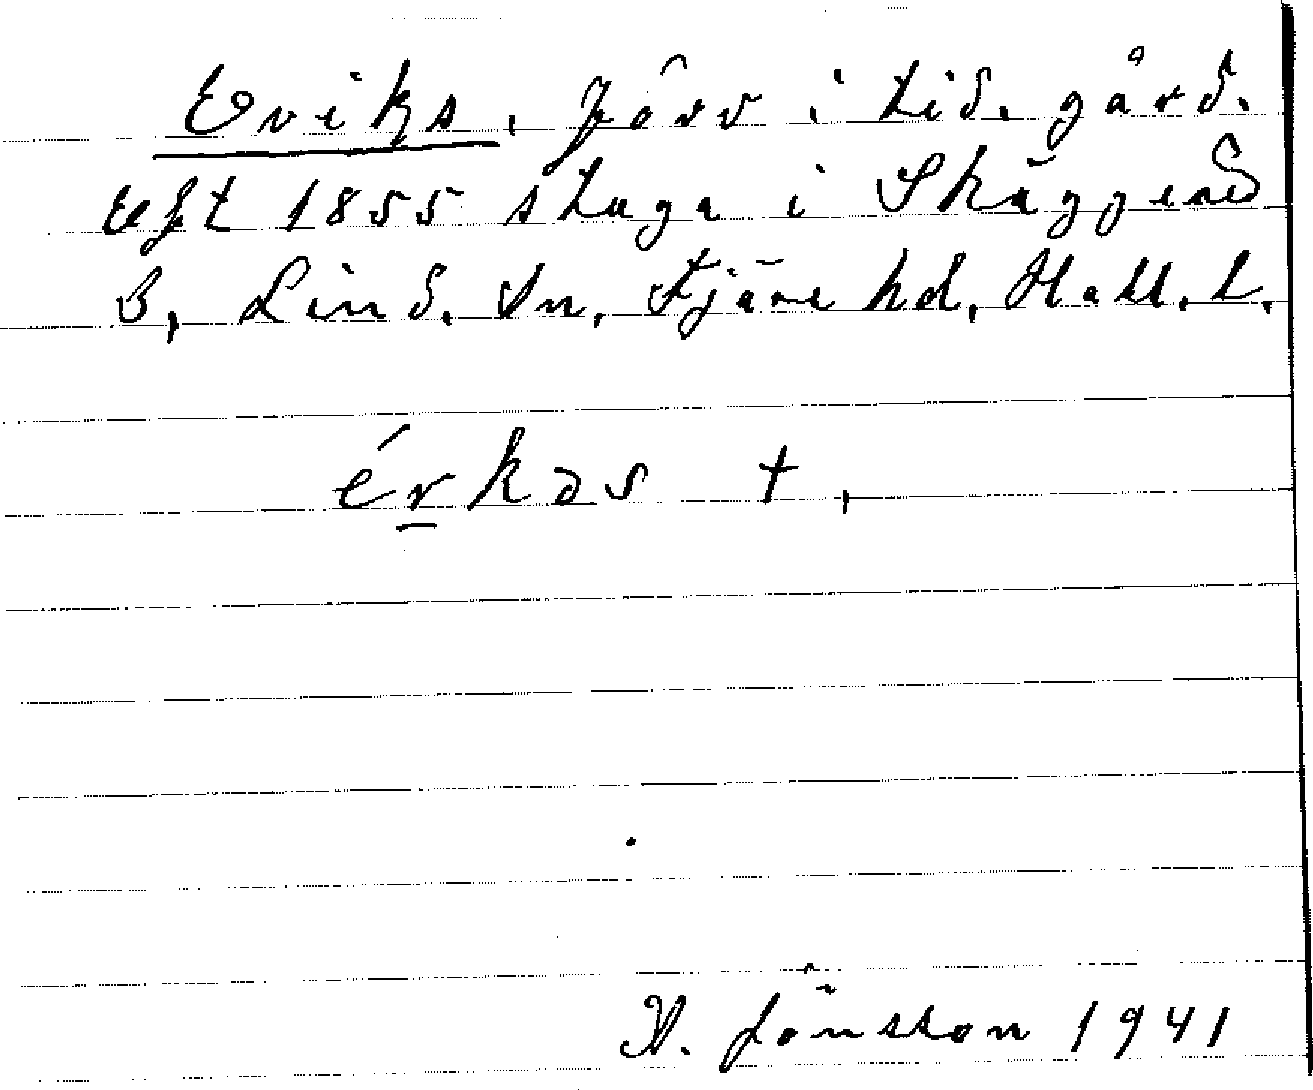 Eriks. förr i tid. gård.
Eft 1855 stuga i Skäggered
B, Lind. Sn, Fjäre hd, Hall. L.
érkəs +,
V. Jönsson 1941